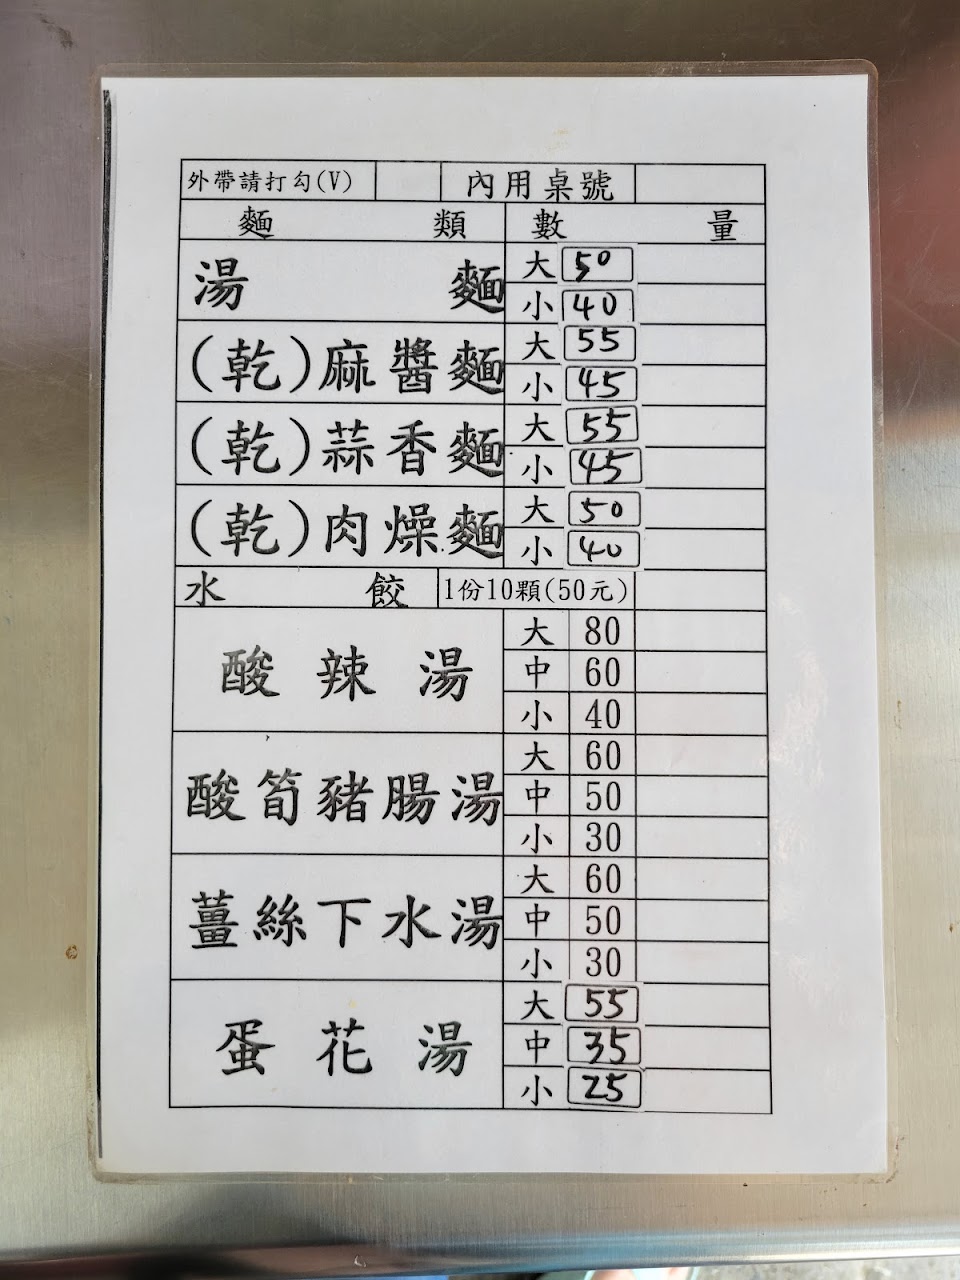 外帶請打勾(V) 內用桌號
麵類 數量
湯麵 大 50
小 40
(乾)麻醬麵 大 55
小 45
(乾)蒜香麵 大 55
小 45
(乾)肉燥麵 大 50
小 40
水餃 1份10顆(50元)
酸辣湯 大 80
中 60
小 40
酸筍豬腸湯 大 60
中 50
小 30
薑絲下水湯 大 60
中 50
小 30
蛋花湯 大 55
中 35
小 25